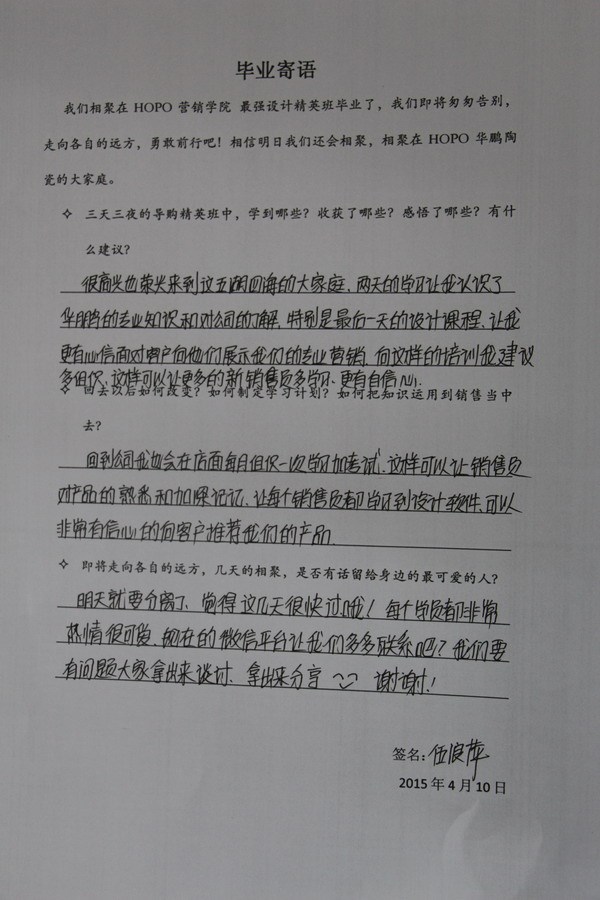 毕业寄语
我们相聚在 HOPO 营销学院 最强设计精英班毕业了，我们即将匆匆告别，
走向各自的远方，勇敢前行吧！相信明日我们还会相聚，相聚在 HOPO 华鹏陶
瓷的大家庭。
✧ 三天三夜的导购精英班中，学到哪些？收获了哪些？感悟了哪些？有什
么建议？
很高兴也荣兴来到这五湖四海的大家庭、两天的学习让我认识了
华鹏的专业知识和对公司的了解.特别是最后一天的设计课程、让我
更有心信面对客户向他们展示我们的专业营销.向这样的培训我建议
多组织、这样可以让更多的新销售员多学习、更有自信心.
✧ 回去以后如何改变？如何制定学习计划？如何把知识运用到销售当中
去？
回到公司我也会在店面每月组织一次学习加考试、这样可以让销售员
对产品的熟悉和加深记记、让每个销售员都学习到设计软件、可以
非常有信心的向客户推荐我们的产品
✧ 即将走向各自的远方，几天的相聚，是否有话留给身边的最可爱的人？
明天就要分离了、觉得这几天很快过哦！每个学员都非常
热情很可爱、现在的微信平台让我们多多联系吧？我们要
有问题大家拿出来谈讨、拿出来分享 谢谢！
签名：伍浪萍
2015 年 4 月 10 日